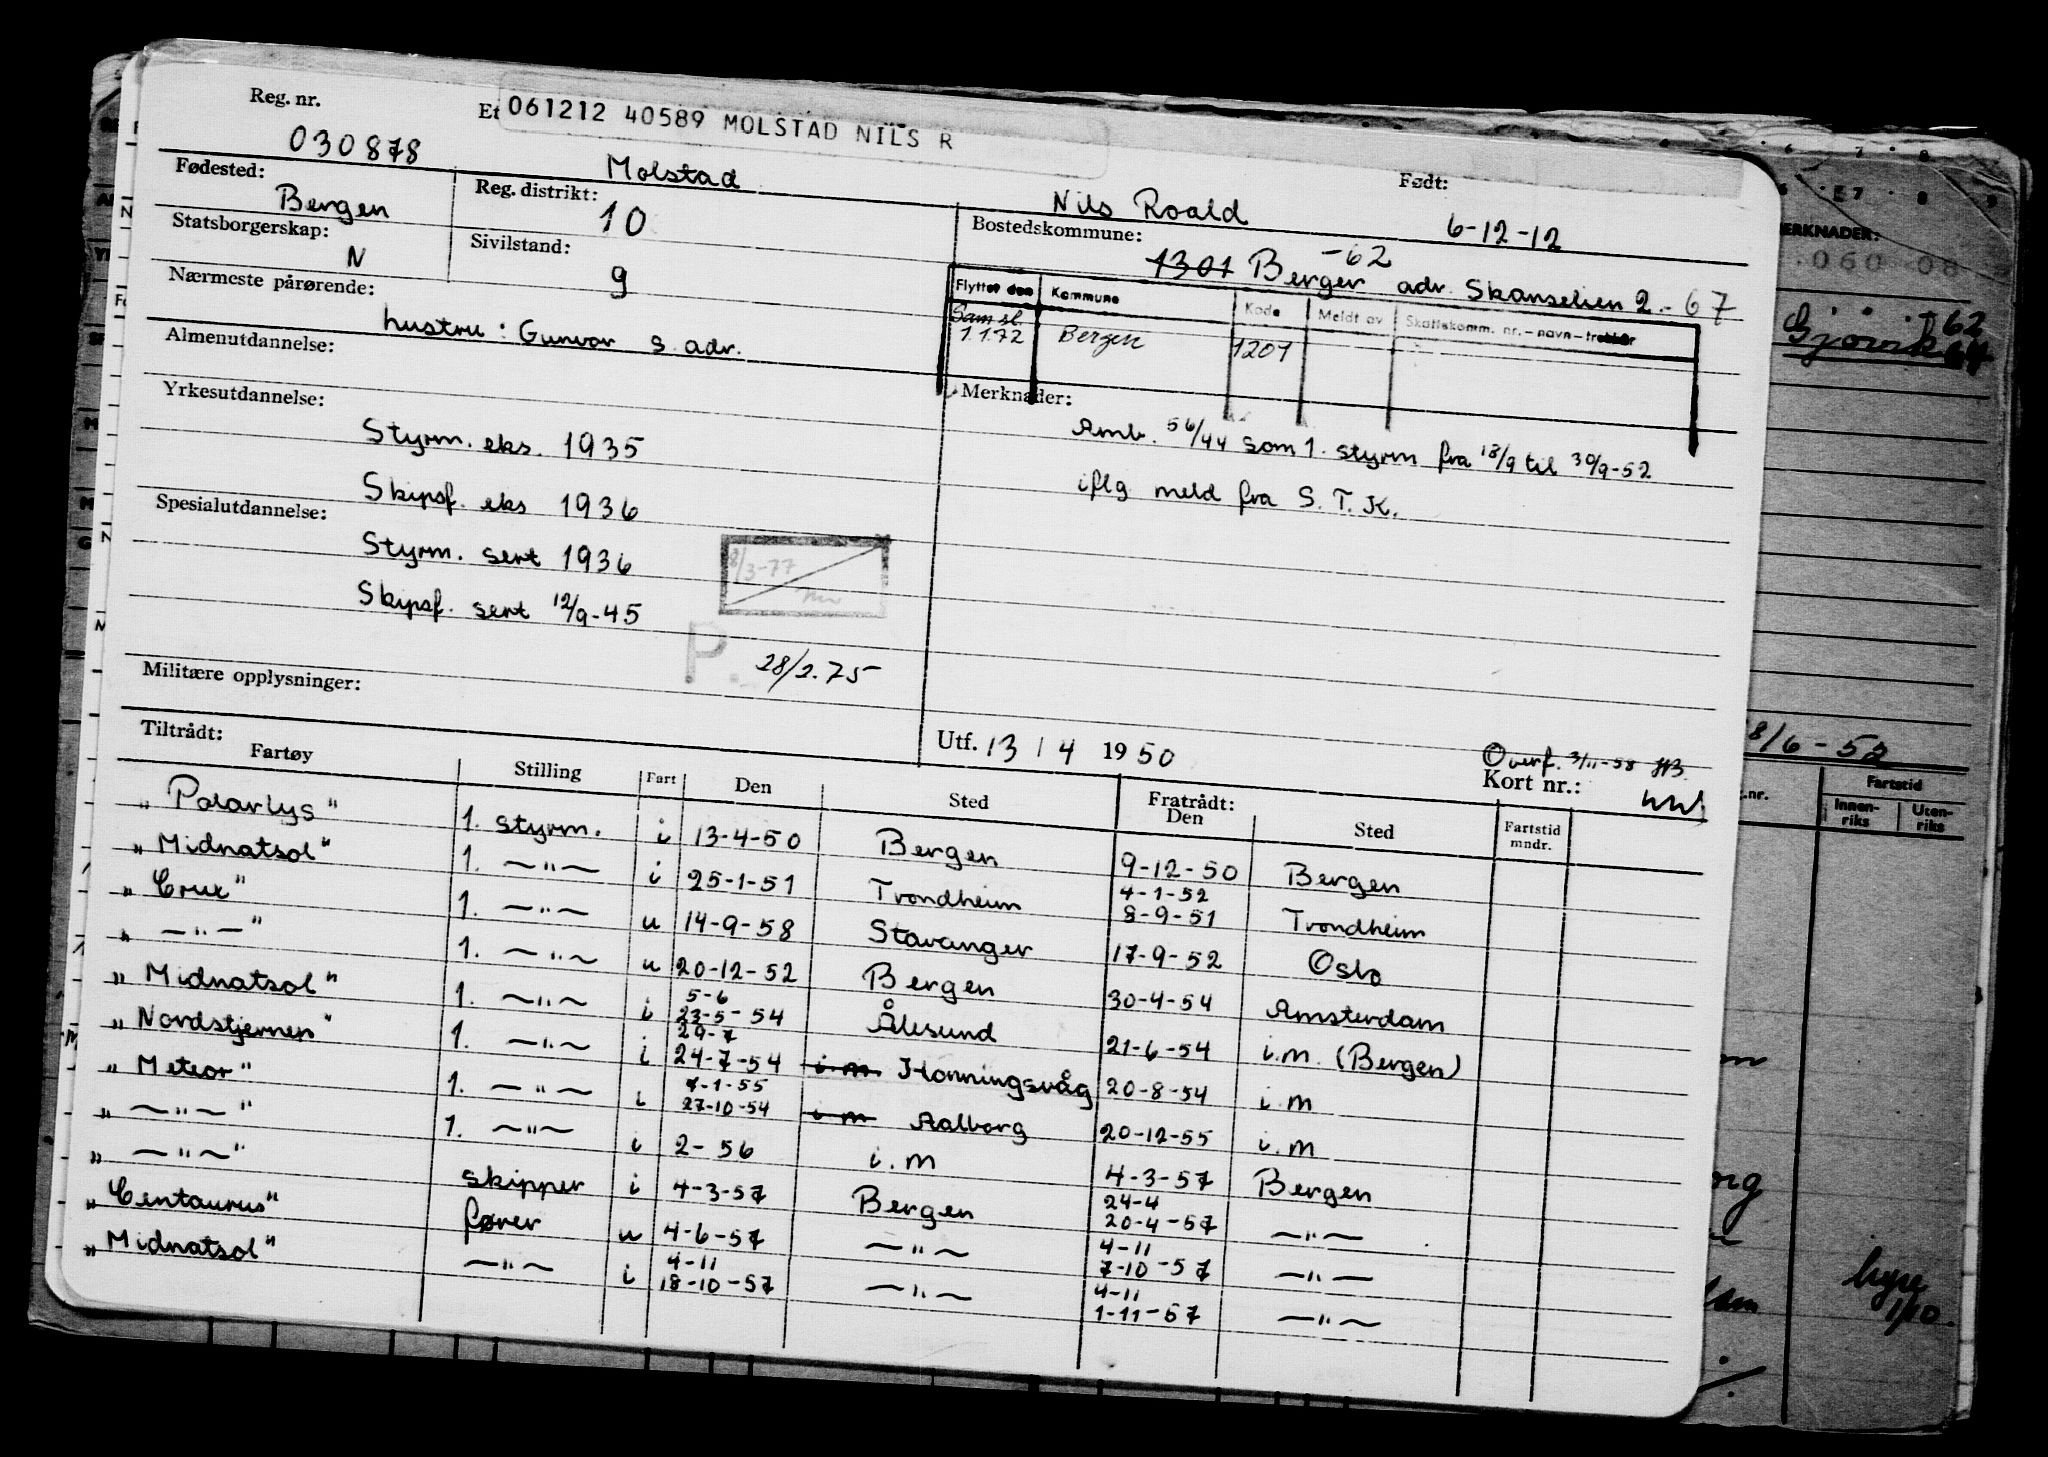 Reg. nr. Et 061212 40589 MOLSTAD NILS R
030878 Molstad Nils Roald Født: 6-12-12
Fødested: Bergen Reg. distrikt: 10 Bostedskommune: 1301 Bergen -62 adr. Skanselien 2 - 67
Statsborgerskap: N Sivilstand: g
Flyttet den Kommune Kode Meldt av Skattekomm. nr. – navn – trekkår
Sam sl. 1.1.72 Bergen 1201
Nærmeste pårørende: hustru: Gunvor s. adr.
Almenutdannelse:
Yrkesutdannelse: Merknader:
Styrm. eks. 1935 Amb. 56/44 som 1. styrm fra 18/9 til 30/9-52
Skipsf. eks 1936 iflg meld fra S. T. K.
Spesialutdannelse:
Styrm. sert 1936 8/3-77
Skipsf. sert 12/9-45
P. 28/2.75
Militære opplysninger:
Utf. 13 / 4 1950 Overf. 3/11-58
Tiltrådt: Kort nr.:
Fartøy Stilling Fart Den Sted Fratrådt: Den Sted Fartstid mndr.
"Polarlys" 1. styrm. i 13-4-50 Bergen 9-12-50 Bergen
"Midnatsol" 1. —"— i 25-1-51 Trondheim 4-1-52 8-9-51 Trondheim
"Crux" 1. —"— u 14-9-58 Stavanger 17-9-52 Oslo
" —"— " 1. —"— u 20-12-52 Bergen 30-4-54 Amsterdam
"Midnatsol" 1. —"— i 5-6 23-5-54 Ålesund 21-6-54 i.m. (Bergen)
"Nordstjernen" 1. —"— i 29-7 24-7-54 i.m Honningsvåg 20-8-54 i.m
"Meteor" 1. —"— i 7-1-55 27-10-54 i.m Aalborg 20-12-55 i.m
" —"— " 1. —"— i 2-56 i.m 4-3-57 Bergen
" —"— " skipper i 4-3-57 Bergen 24-4 20-4-57 —"—
"Centaurus" fører u 4-6-57 —"— 4-11 7-10-57 —"—
"Midnatsol" —"— i 4-11 18-10-57 —"— 4-11 1-11-57 —"—
MERKNADER:
060 08
Gjøvik 62
8/6-52
Fartstid
Innenriks Utenriks
hyre 1/10.